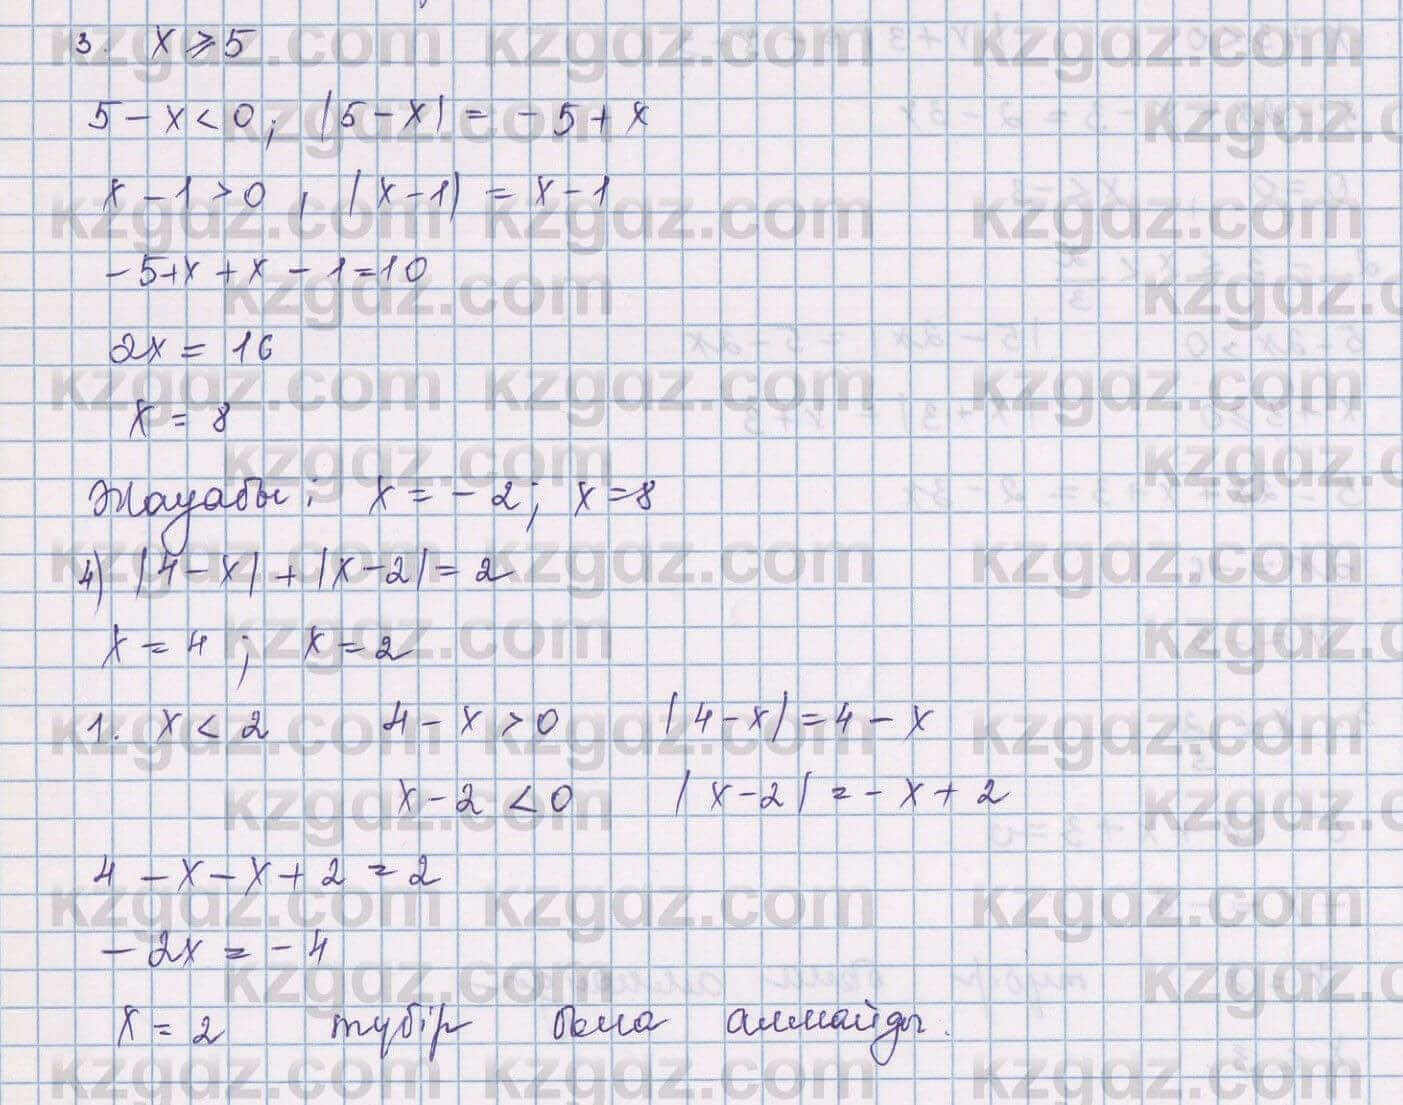 3. x ⩾ 5
5 - x < 0; |5 - x| = - 5 + x
x - 1 > 0, |x - 1) = x - 1
- 5 + x + x - 1 = 10
2x = 16
x = 8
Жауабы: x = - 2; x = 8
4) |4 - x| + |x - 2| = 2
x = 4; x = 2
1. x < 2 4 - x > 0 |4 - x| = 4 - x
x - 2 < 0 |x - 2| = - x + 2
4 - x - x + 2 = 2
- 2x = - 4
x = 2 түбір бола алмайды.